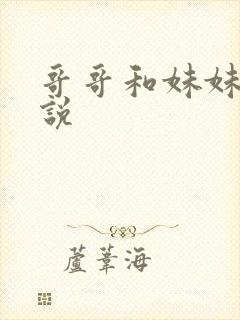 哥哥和妹妹
說
蘆葦海